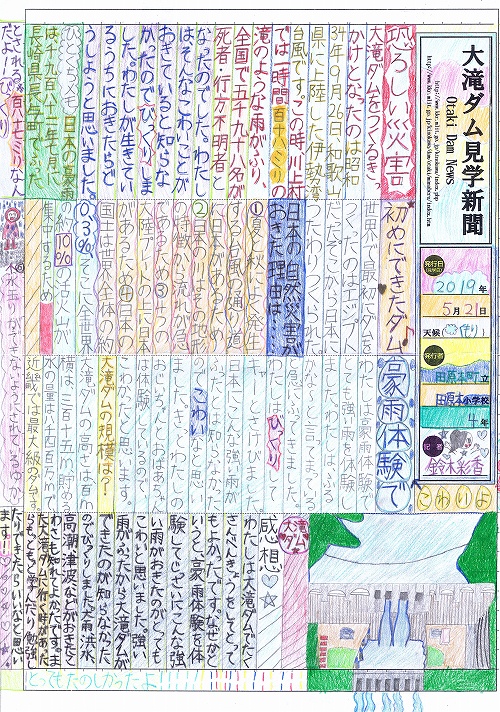 大滝ダム見学新聞
Otaki Dam News
発行日
2019年
5月21日
天候
くもり
発行者
田原本町立
田原本小学校
4年
記者
鈴木彩香
恐ろしい災害
大滝ダムをつくるきっ
かけとなったのは昭和
34年9月26日和歌山
県に上陸した伊勢湾
台風です。この時、川上村
では一時間百十八ミリの
滝のような雨がふり、
全国で五千九十八名が
死者・行方不明者と
なったのでした。わたし
はそんなこわいことが
おきているの知らな
かったのでびっくりしま
した。わたしが生きてい
るうちにおきたらど
うしようと思いました。
ひとくちメモ 日本の豪雨
は千九百八十二年七月に
長崎県長与町でふった
とされる百八十七ミリなん
だよ!びっくり
初めにできたダム
世界で最初にダムを
つくったのはエジプト
だって。だから日本に
つたわりつくられた
日本の自然災害が
おきた理由は
①夏と秋によく発生
する台風の通り道
に日本があるため
②日本の川はその地形
の特徴から流れが急
なため③4つの
大陸プレートの上に日本
があるため④日本の
国土は世界全体の約
0.3%、そこに全世界
の約10%の活火山が
集中するため
豪雨体験で
わたしは豪雨体験で
とても強い雨を体験し
ました。わたしはふる
かなぁと言ってまっている
と急にふってきました。
びっくり
してさけびました。
日本にこんな強い雨が
ふるのは知らなかった
こわい
おじいちゃんとおばあちゃん
は体験しているので
こわかったと思います。
大滝ダムの規模は?
大滝ダムの高さは百m
横は、三百十五m、貯める
水の量は八千四百万㎥で
近畿では最大級のダムです。
こわいよ
大滝ダム
感想
わたしは大滝ダムでたく
さんべんきょうをしてとって
もよかったです。なぜかと
いうと、豪雨体験を体
験してじっさいにこんな強
い雨がおきたのがとっても
こわいと思いました。強い
雨がふったから大滝ダムが
できたのが知らなかった
のでびっくりしました。大雨、洪水、
高潮、津波などがおきたこ
とも知れてよかったです。ま
た大滝ダムに行く時があった
らもっともっと学んだり勉強し
たりできたらいいなと思い
ます!
とってもたのしかったよ!